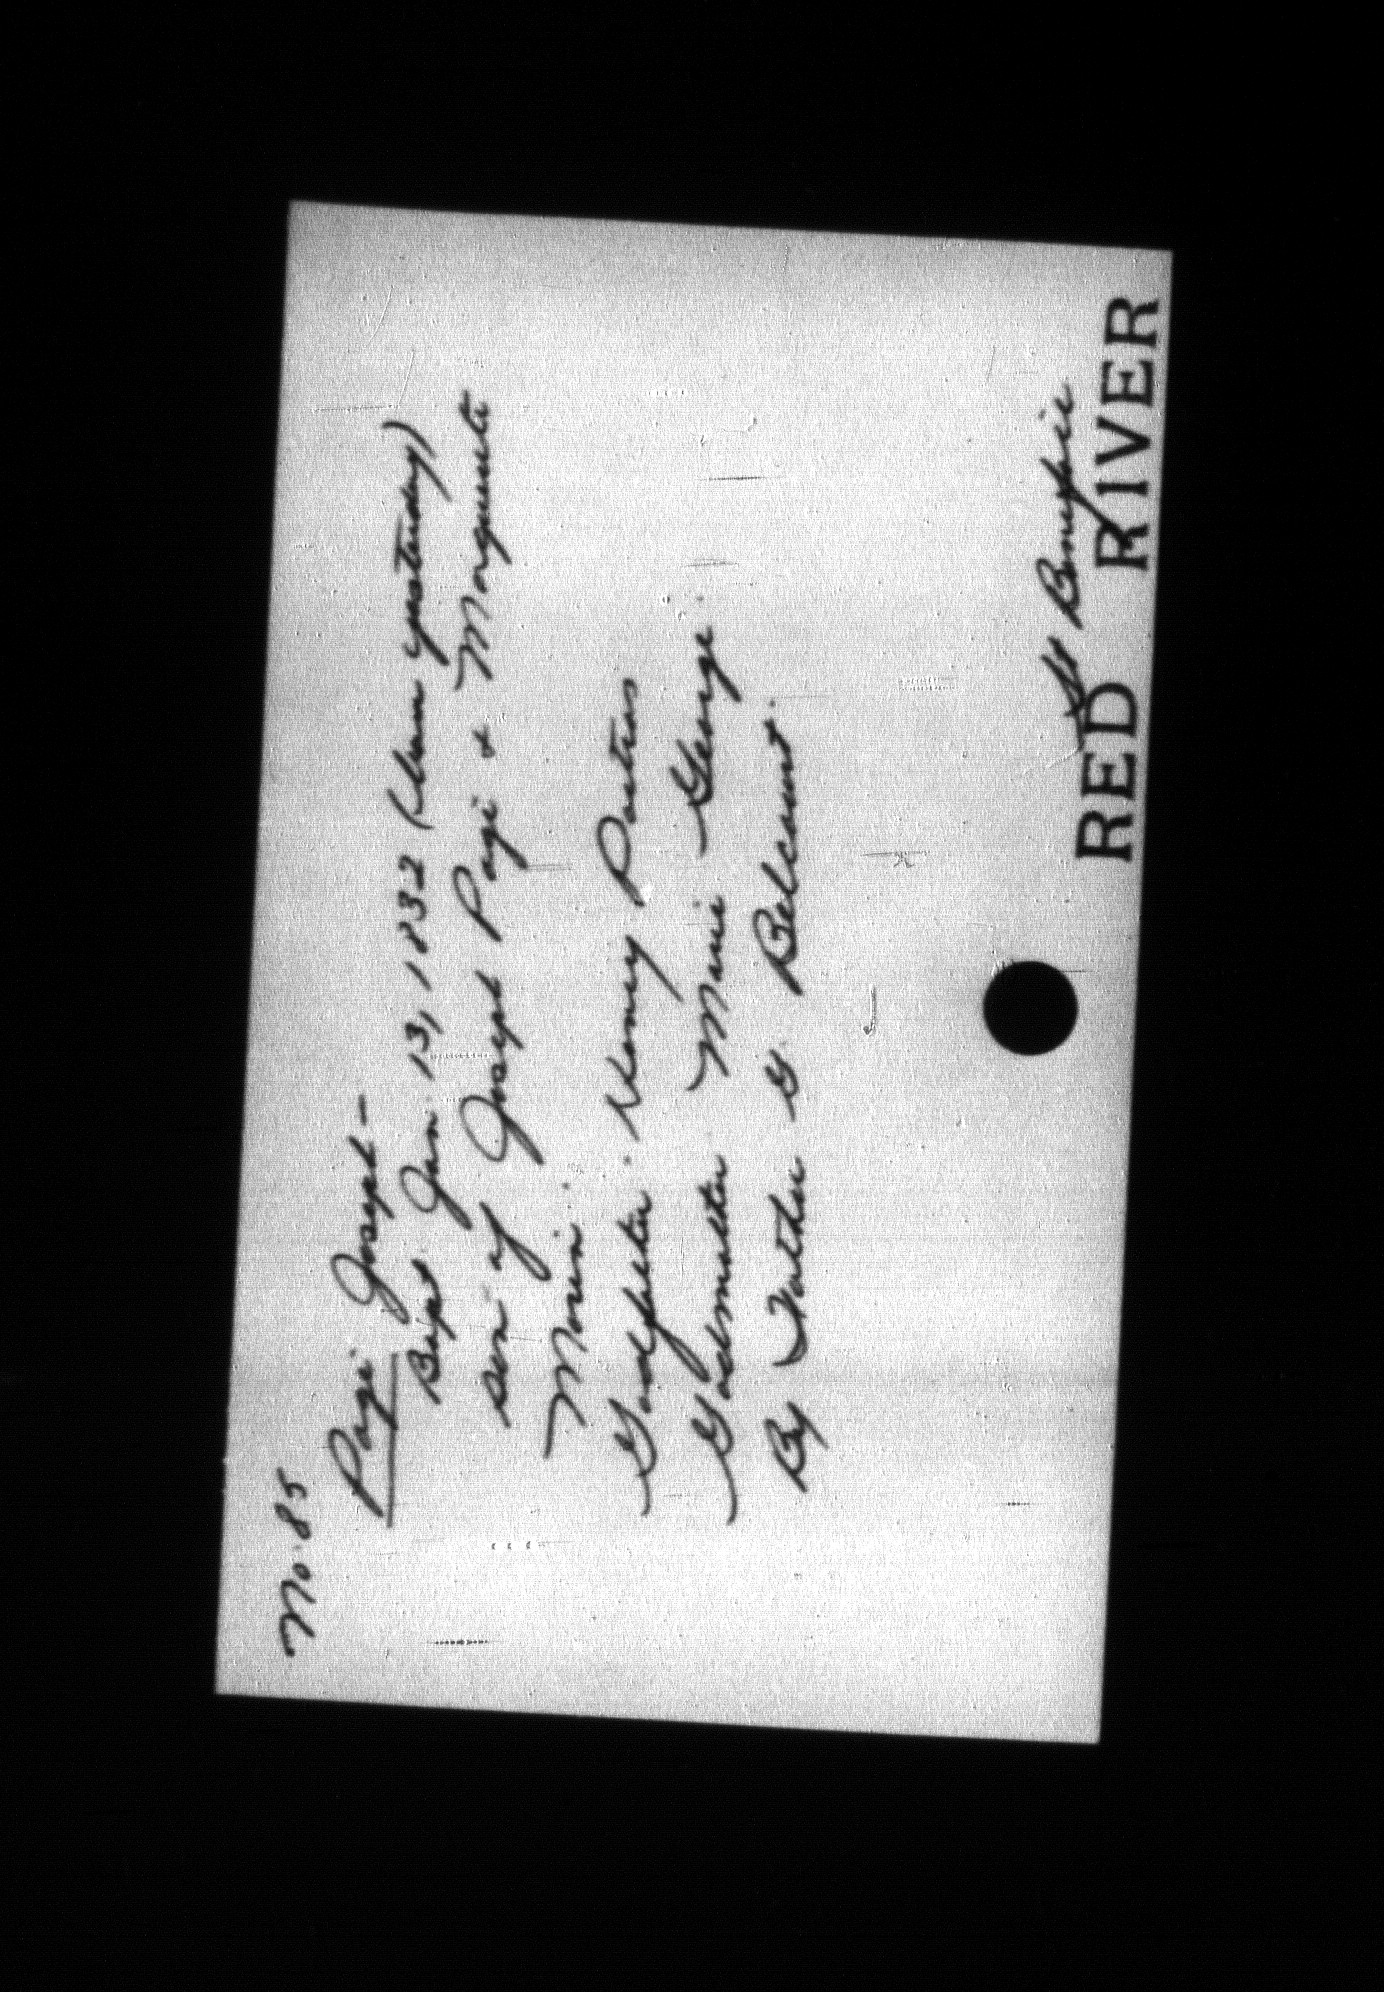 No. 85
Pagé Joseph -
Bapt. Jan. 13, 1832 (born yesterday)
son of Joseph Pagé & Marguerite
Morin.
Godfather. Henry Poitras
Godmother Marie George.
By Father G. Belcourt.
St Boniface
RED RIVER